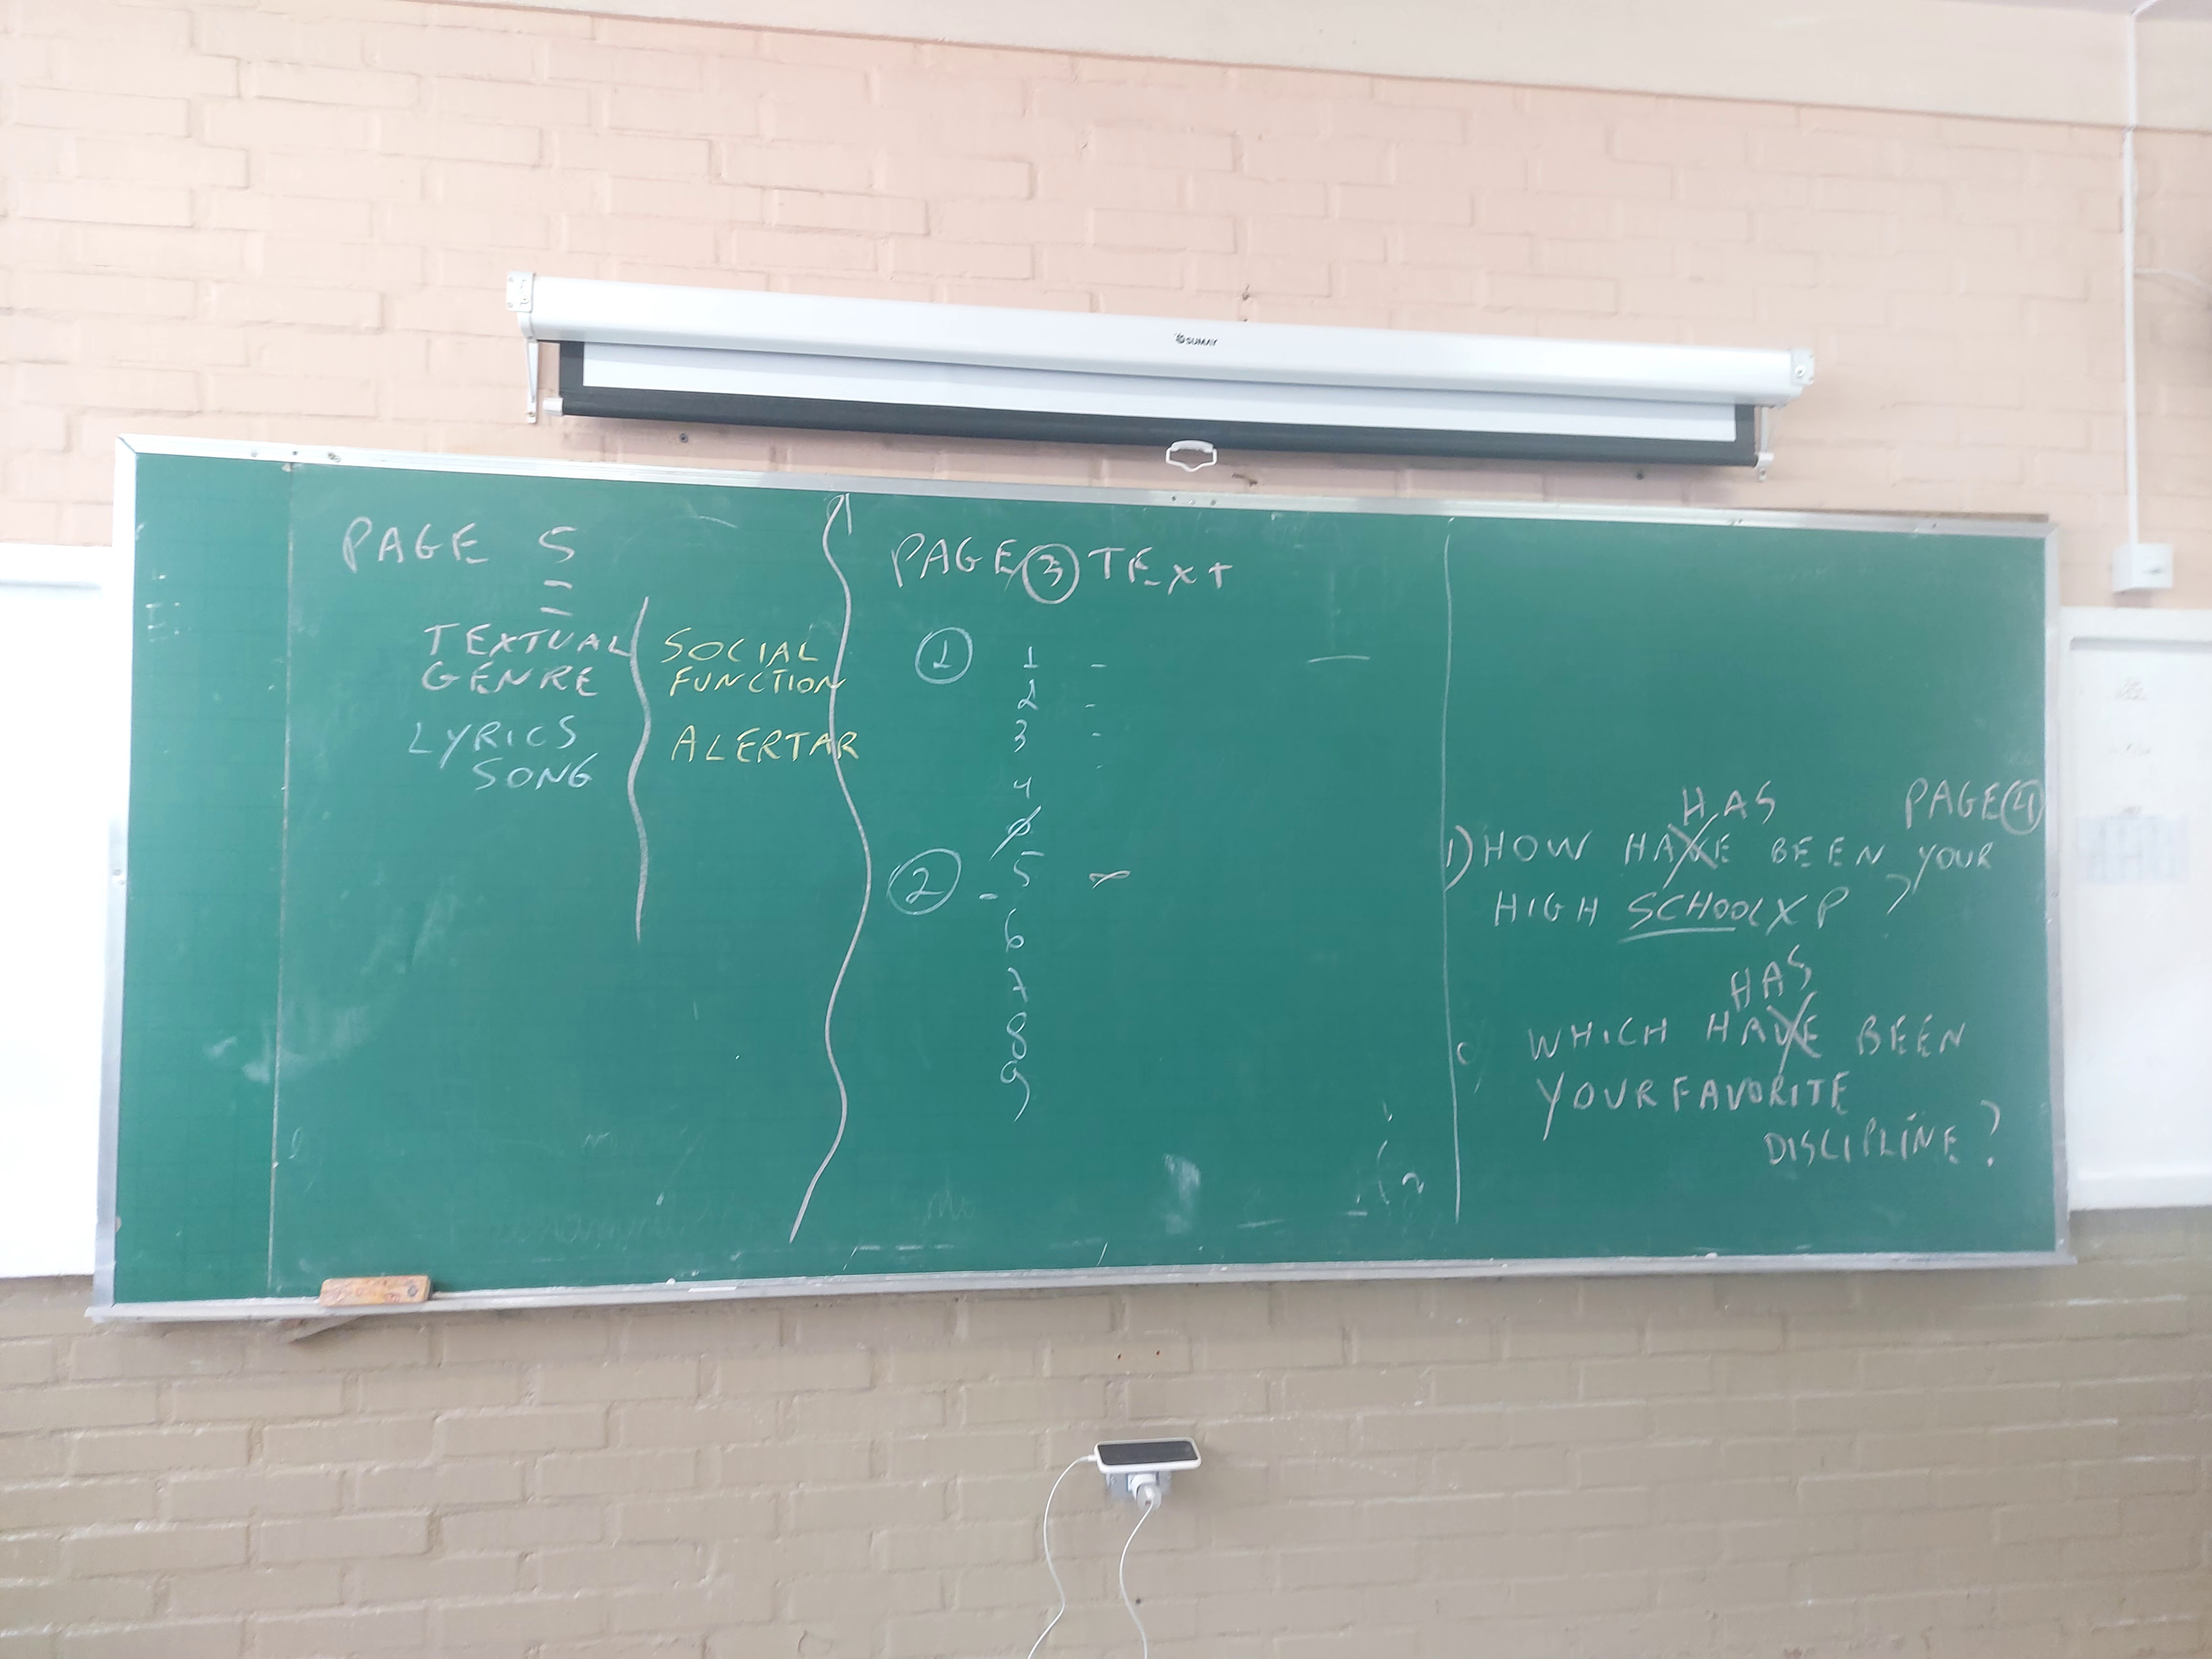 SUMAY
PAGE 5
TEXTUAL
GENRE
LYRICS
SONG
SOCIAL
FUNCTION
ALERTAR
PAGE 3 TEXT
1 1 -
2 -
3 -
4
2 - 5 -
6
7
8
9
PAGE 4
HAS
1) HOW HAVE BEEN YOUR
HIGH SCHOOL XP ?
HAS
WHICH HAVE BEEN
YOUR FAVORITE
DISCIPLINE?